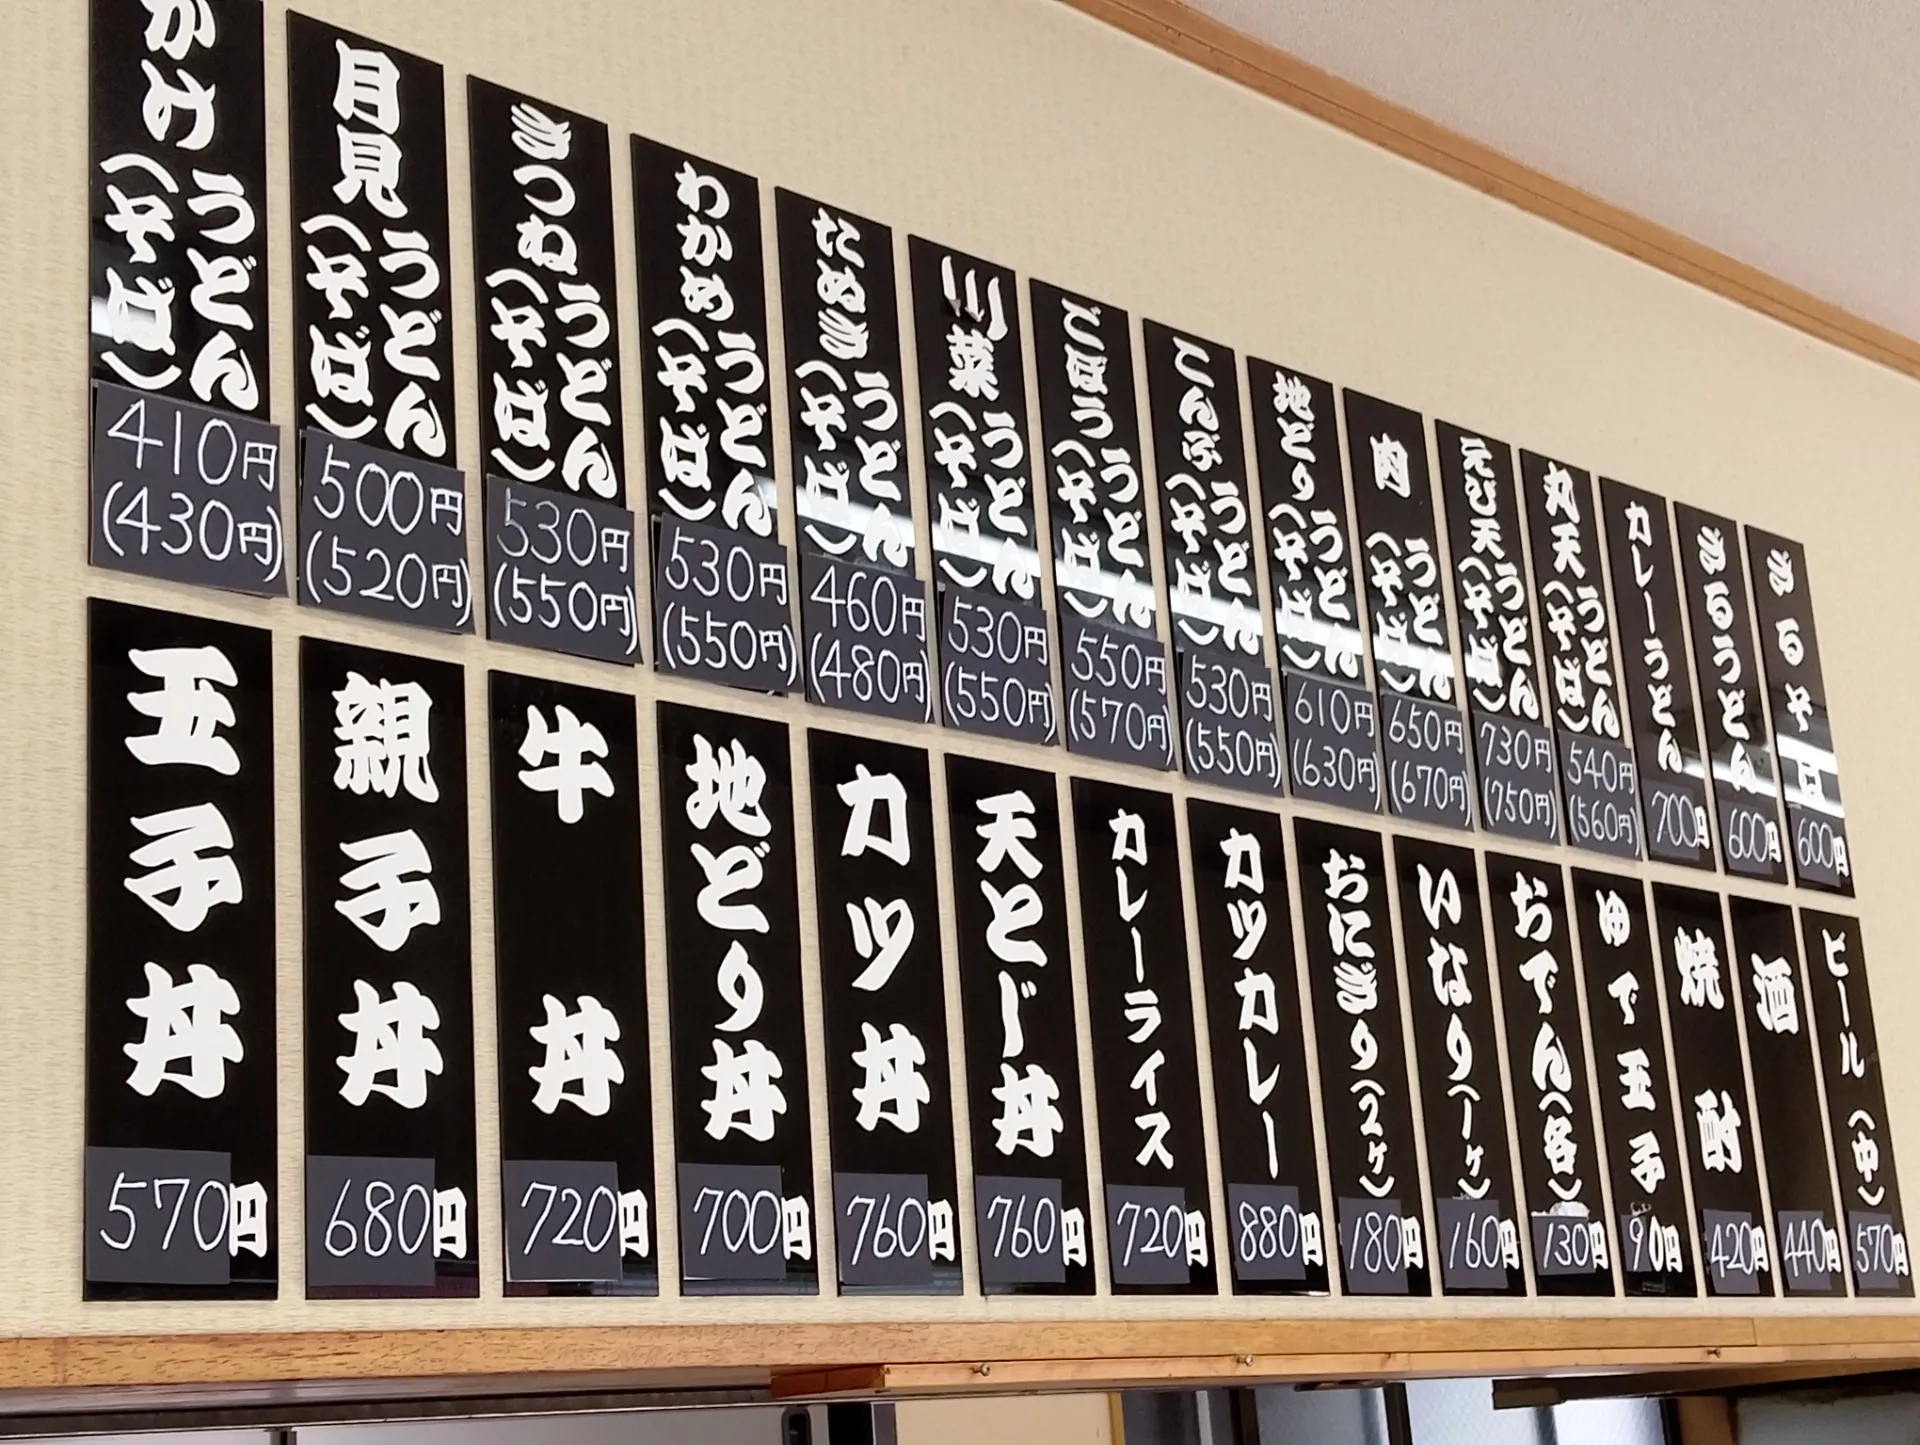 かけうどん(そば)
410円
(430円)
月見うどん(そば)
500円
(520円)
きつねうどん(そば)
530円
(550円)
わかめうどん(そば)
530円
(550円)
たぬきうどん(そば)
460円
(480円)
川菜うどん(そば)
530円
(550円)
ごぼううどん(そば)
550円
(570円)
こんぶうどん(そば)
530円
(550円)
地どりうどん(そば)
610円
(630円)
肉うどん(そば)
650円
(670円)
えび天うどん(そば)
730円
(750円)
丸天うどん(そば)
540円
(560円)
カレーうどん
700円
ざるうどん
600円
ざるそば
600円
玉子丼
570円
親子丼
680円
牛丼
720円
地どり丼
700円
カツ丼
760円
天とじ丼
760円
カレーライス
720円
カツカレー
880円
おにぎり(2ヶ)
180円
いなり(1ヶ)
160円
おでん(各)
130円
ゆで玉子
90円
焼酎
420円
酒
440円
ビール(中)
570円